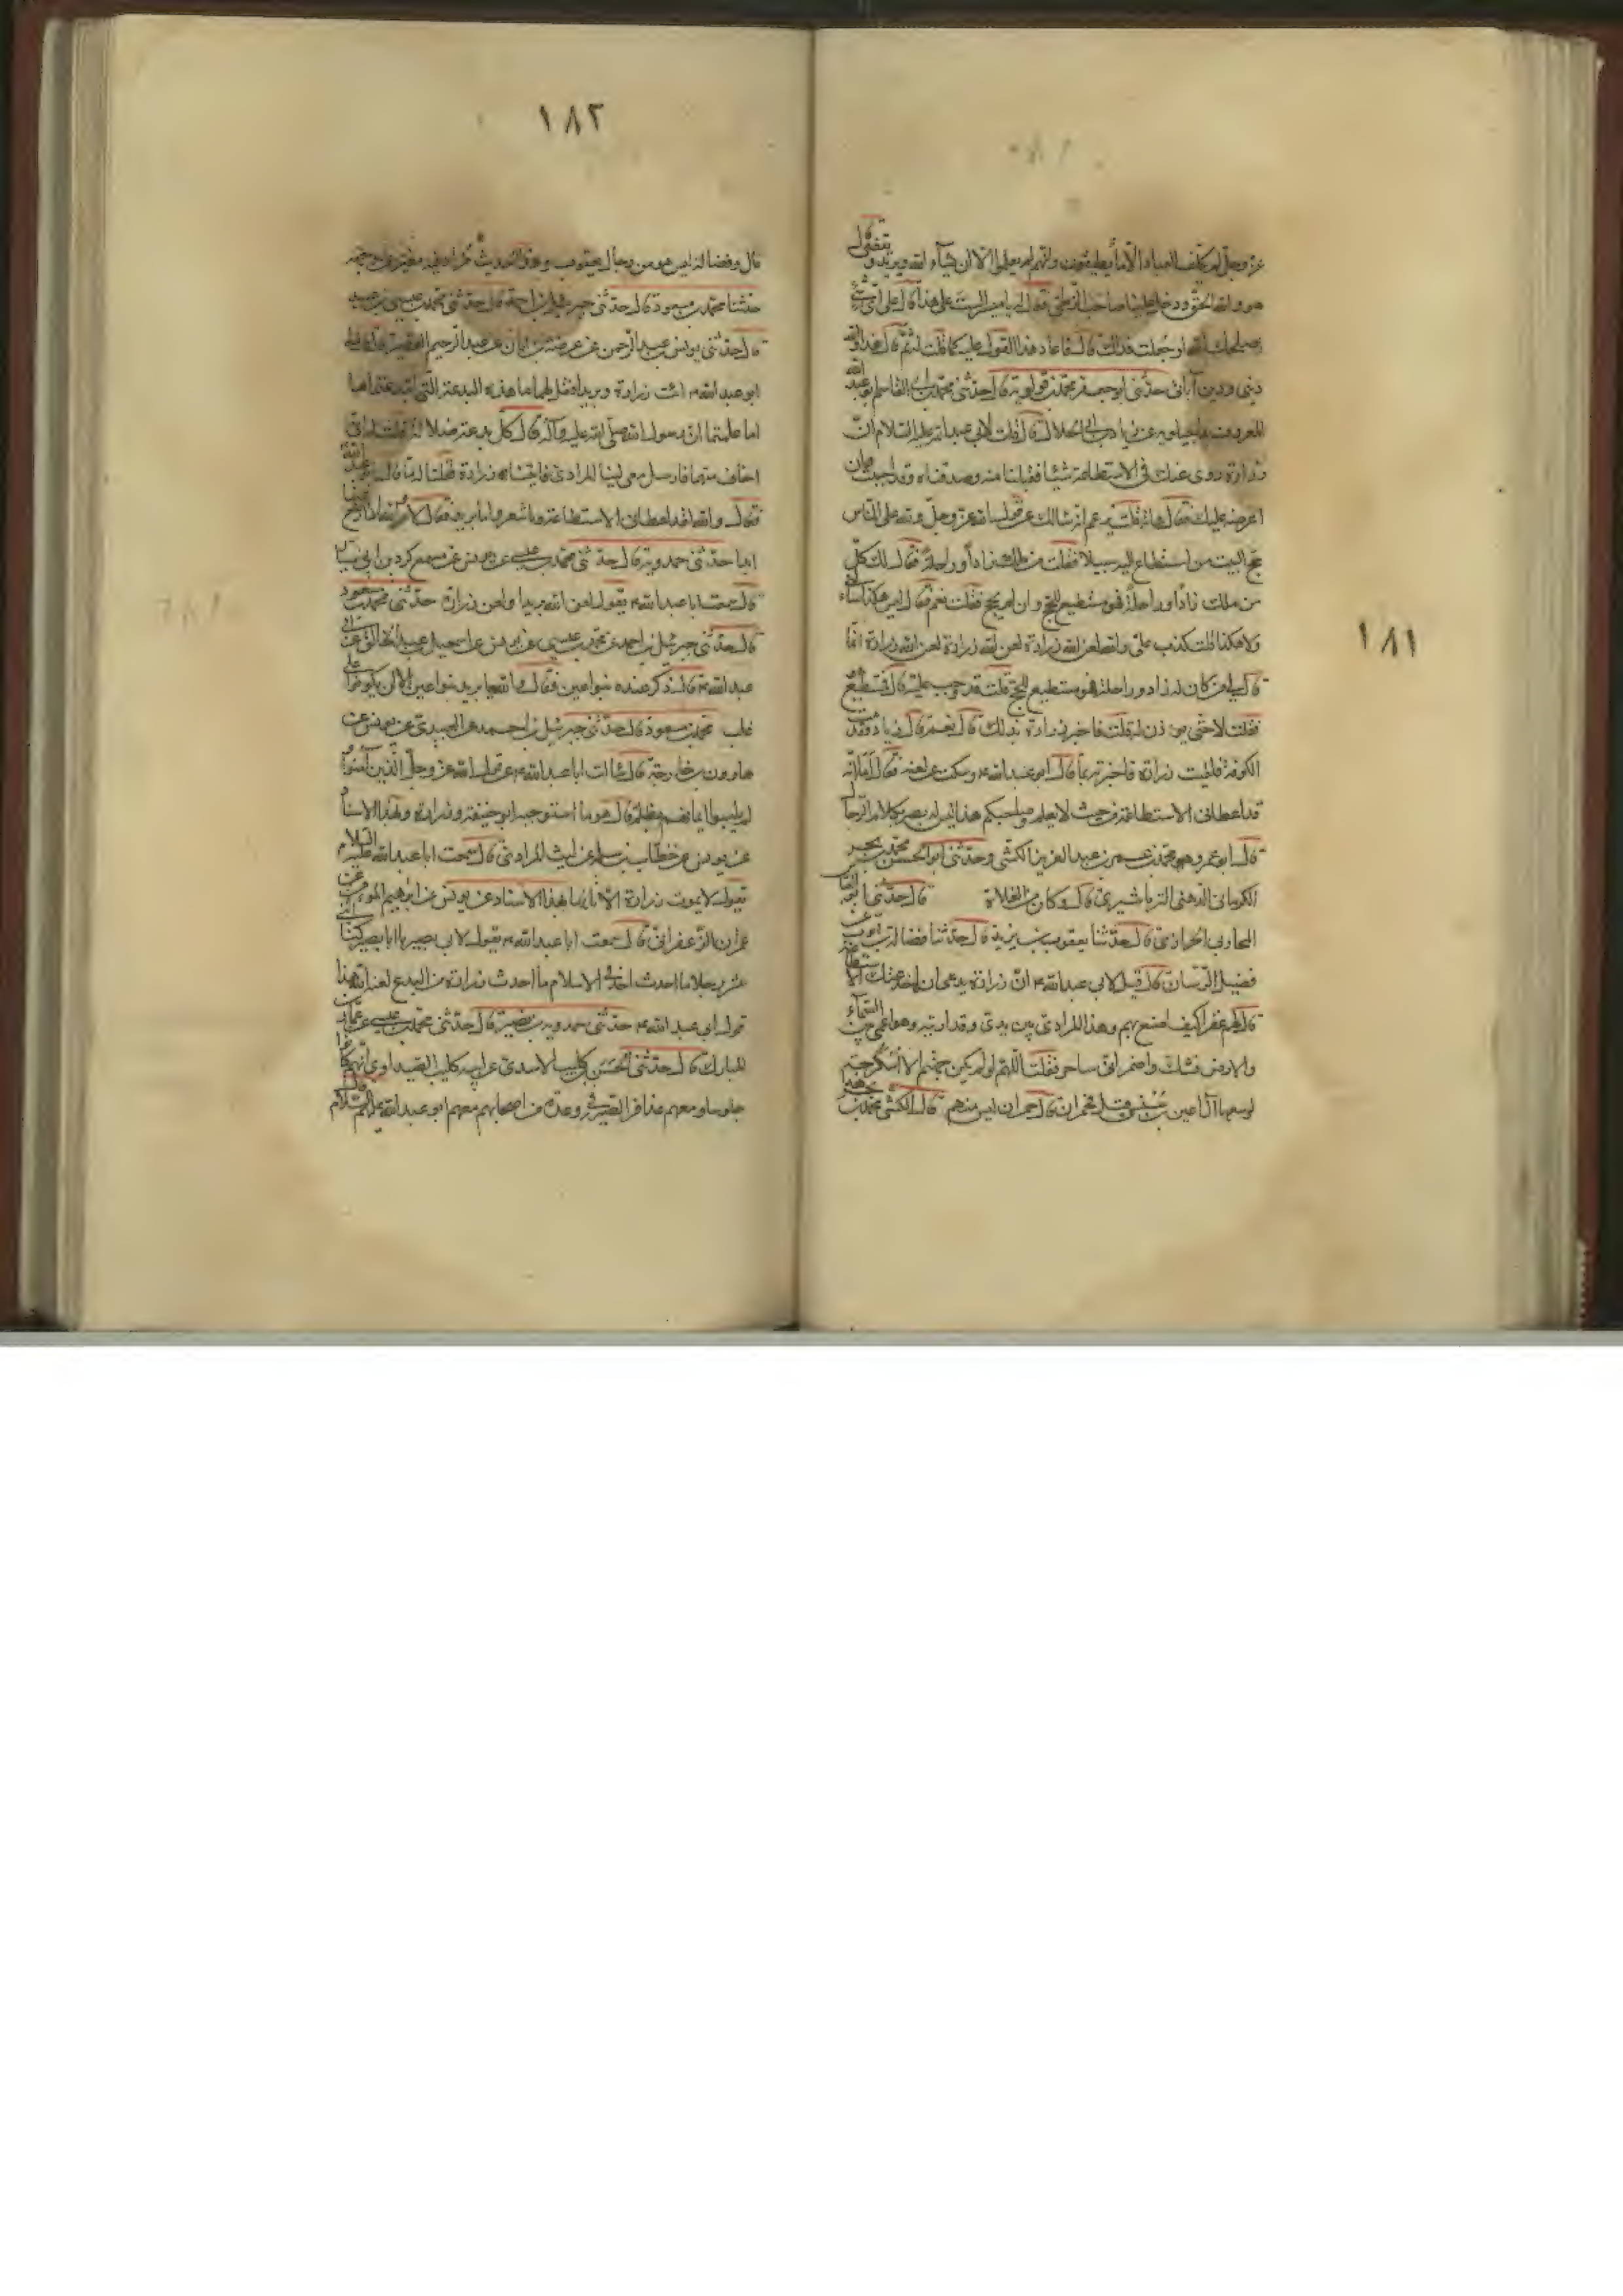 ١٨١
عز وجل لم يكلف العباد الا ما يطيقون وانهم لم يعملوا الا ان يشاء الله ويريد ويقضى قال
هو والله الحق ودخل علينا صاحب الزطى فقال له يا ميسر الست على هذا قال على اى شئ
اصلحك الله او جعلت فداك قال فاعاد هذا القول عليه كما قلت له ثم قال هذا والله
دينى ودين آبائى حدثنى ابو جعفر محمد بن قولويه قال حدثنى محمد بن ابى القاسم ابو عبد الله
المعروف بماجيلويه عن زياد بن ابى الحلال قال قلت لابى عبد الله عليه السلام ان
زرارة روى عنك فى الاستطاعة شيئا فقبلنا منه وصدقناه وقد احببت ان
اعرضه عليك فقال هاته فقلت يزعم انه سالك عن قول الله عز وجل ولله على الناس
حج البيت من استطاع اليه سبيلا فقلت من ملك زادا وراحلة فقال لك كل
من ملك زادا وراحلة فهو مستطيع للحج وان لم يحج فقلت نعم فقال ليس هكذا سألنى
ولا هكذا قلت كذب على والله لعن الله زرارة لعن الله زرارة لعن الله زرارة انما
قال لى من كان له زاد وراحلة فهو مستطيع للحج قلت قد وجب عليه قال فمستطيع هو
فقلت لا حتى يوذن له قلت فاخبر زرارة بذلك قال نعم قال زياد فقدمت
الكوفة فلقيت زرارة فاخبرته بما قال ابو عبد الله ع وسكت عن لعنه فقال اما انه
قد اعطانى الاستطاعة من حيث لا يعلم وصاحبكم هذا ليس له بصر بكلام الرجال
قال ابو عمرو محمد بن عمر بن عبد العزيز الكشى وحدثنى ابو الحسن محمد بن بحر
الكرمانى الدهنى النرماشيرى قال وكان من الغلاة قال حدثنى ابو العباس
المحاربى الجزرى قال حدثنا يعقوب بن يزيد قال حدثنا فضالة بن ايوب عن
فضيل الرسان قال قيل لابى عبد الله ع ان زرارة يدعى انه اخذ عنك الاستطاعة
قال لهم غفرا كيف اصنع بهم وهذا المرادى بين يدى وقد اريته وهو اعمى بين السماء
والارض فشك واضمر انى ساحر فقلت اللهم لو لم يكن جهنم الا اسكرجة
لوسعها آل اعين بن سنسن قيل فحمران قال حمران ليس منهم قال الكشى محمد بن بحر هذا
١٨٢
غال وفضالة ليس هو من رجال يعقوب وهذا الحديث مزاد فيه مغير عن وجهه
حدثنا محمد بن مسعود قال حدثنى جبرئيل بن احمد قال حدثنى محمد بن عيسى بن عبيد
قال حدثنى يونس بن عبد الرحمن عن عمر بن ابان عن عبد الرحيم القصير قال قال لى
ابو عبد الله ع ائت زرارة وبريد افقل لهما ما هذه البدعة التى ابتدعتماها
اما علمتما ان رسول الله صلى الله عليه وآله قال كل بدعة ضلالة قلت له انى
اخاف منهما فارسل معى ليثا المرادى فاتينا زرارة فقلنا له ما قال ابو عبد الله
فقال والله لقد اعطانى الاستطاعة وما شعر واما بريد فقال لا والله لا ارجع عنها
ابدا حدثنى حمدويه قال حدثنى محمد بن عيسى عن يونس عن مسمع كردين ابى سيار
قال سمعت ابا عبد الله ع يقول لعن الله بريدا ولعن زرارة حدثنى محمد بن مسعود
قال حدثنى جبرئيل بن احمد عن محمد بن عيسى عن يونس عن اسمعيل بن عبد الخالق عن ابى
عبد الله ع قال ذكر عنده بنو اعين فقال والله ما يريد بنو اعين الا ان يكونوا على
غلب محمد بن مسعود قال حدثنى جبرئيل بن احمد عن العبيدى عن يونس عن
هارون بن خارجة قال سالت ابا عبد الله ع عن قول الله عز وجل الذين آمنوا و
لم يلبسوا ايمانهم بظلم قال هو ما استوجبه ابو حنيفة وزرارة وبهذا الاسناد
عن يونس عن خطاب بن سلمة عن ليث المرادى قال سمعت ابا عبد الله عليه السلام
يقول لا يموت زرارة الا تائها بهذا الاسناد عن يونس عن ابراهيم المومن عن
عمران الزعفرانى قال سمعت ابا عبد الله ع يقول لابى بصير يا ابا بصير وكنى اثنى
عشر رجلا ما احدث احد فى الاسلام ما احدث زرارة من البدع لعنه الله هذا
قول ابى عبد الله ع حدثنى حمدويه بن نصير قال حدثنى محمد بن عيسى عن عمار بن
المبارك قال حدثنى الحسن بن كليب الاسدى عن ابيه كليب الصيداوى انهم كانوا
جلوسا ومعهم عذافر الصيرفى وعدة من اصحابهم معهم ابو عبد الله عليه السلام قال